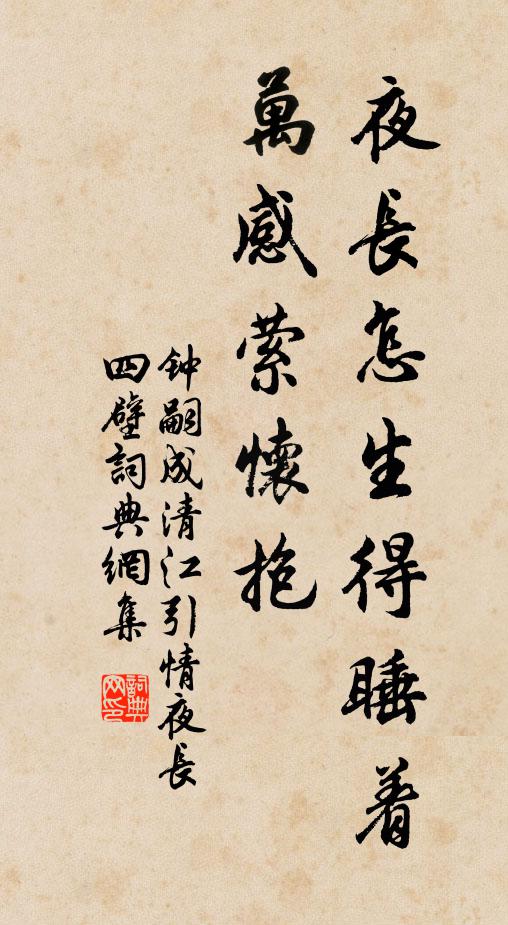 夜長怎生得睡着
萬感縈懷抱
钟嗣成清江引情夜長
四壁詞典網集
詞典
网印